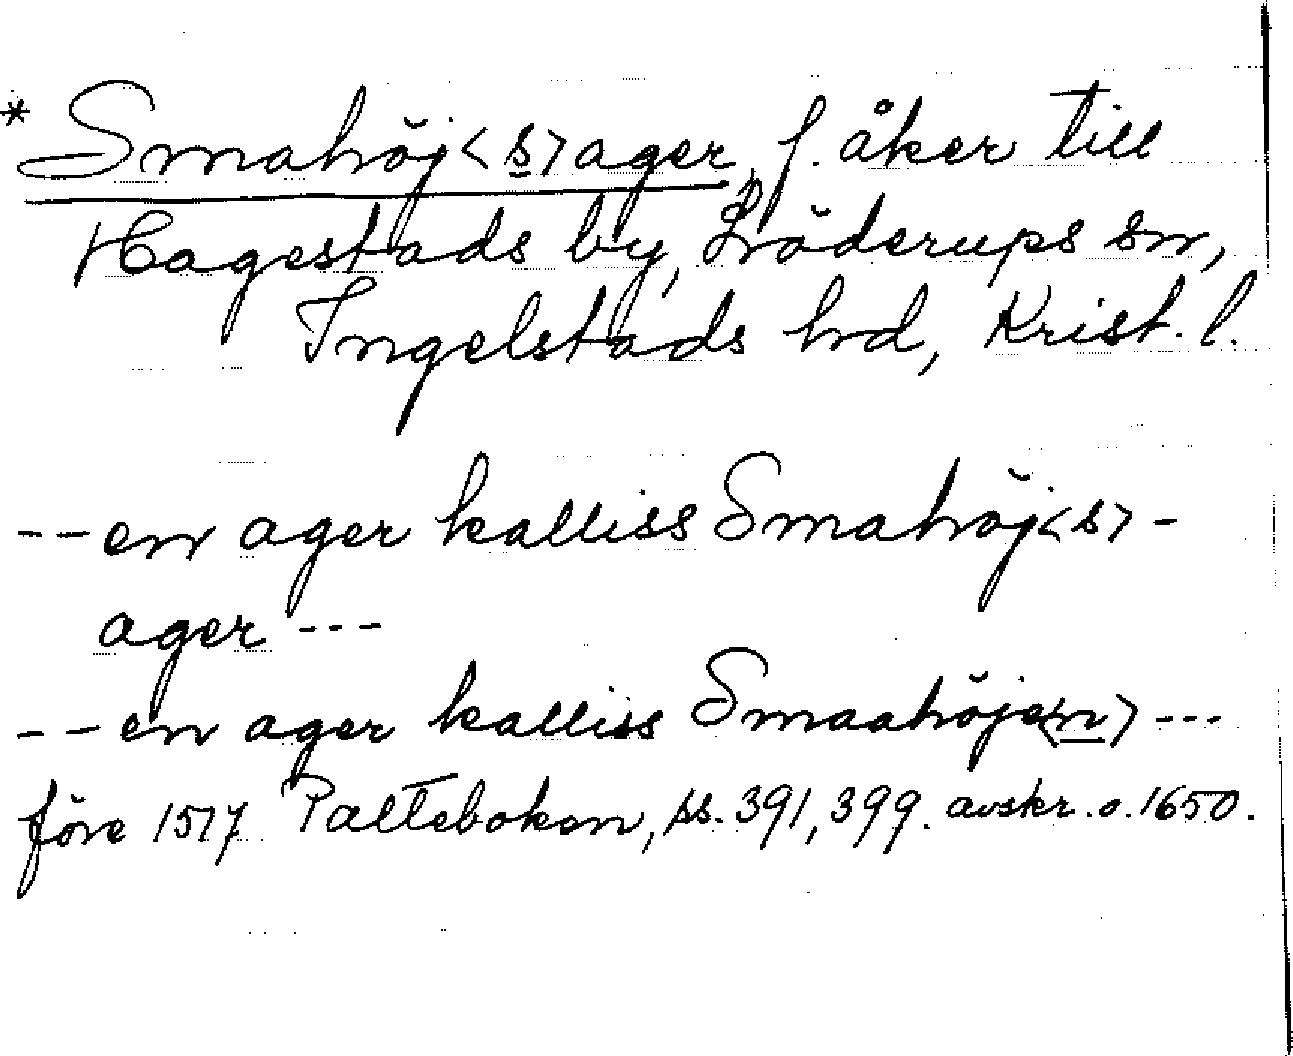 * Smahöj<s>ager, f. åker till
Hagestads by, Löderups sn,
Ingelstads hd, Krist. l.
-- en ager kalliss Smahöj<s>-
ager ---
-- en ager kalliss Smaahöje<n> ---
före 1517 Paltebokon, ss. 391, 399. avskr. o. 1650.